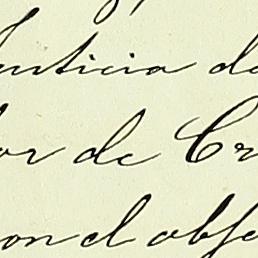 Justicia de
or de Cr
on el obje